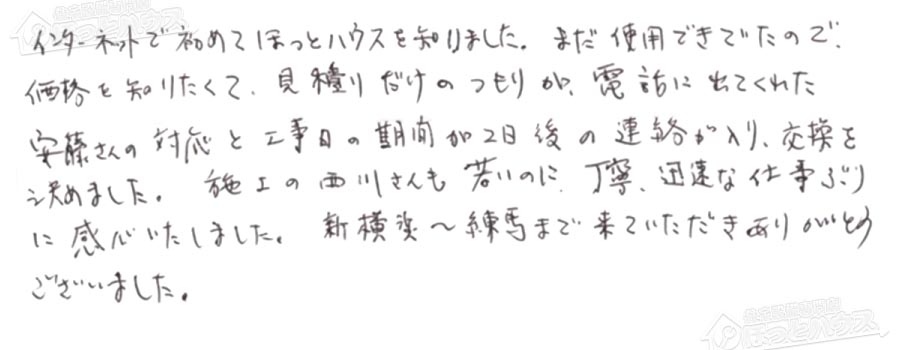 インターネットで初めてほっとハウスを知りました。まだ使用できていたので、
価格を知りたくて、見積りだけのつもりが、電話に出てくれた
安藤さんの対応と工事日の期間が2日後の連絡が入り、交換を
決めました。施工の西川さんも若いのに、丁寧、迅速な仕事ぶり
に感心いたしました。新横浜〜練馬まで来ていただきありがとう
ございました。
ほっとハウス
ほっとハウス